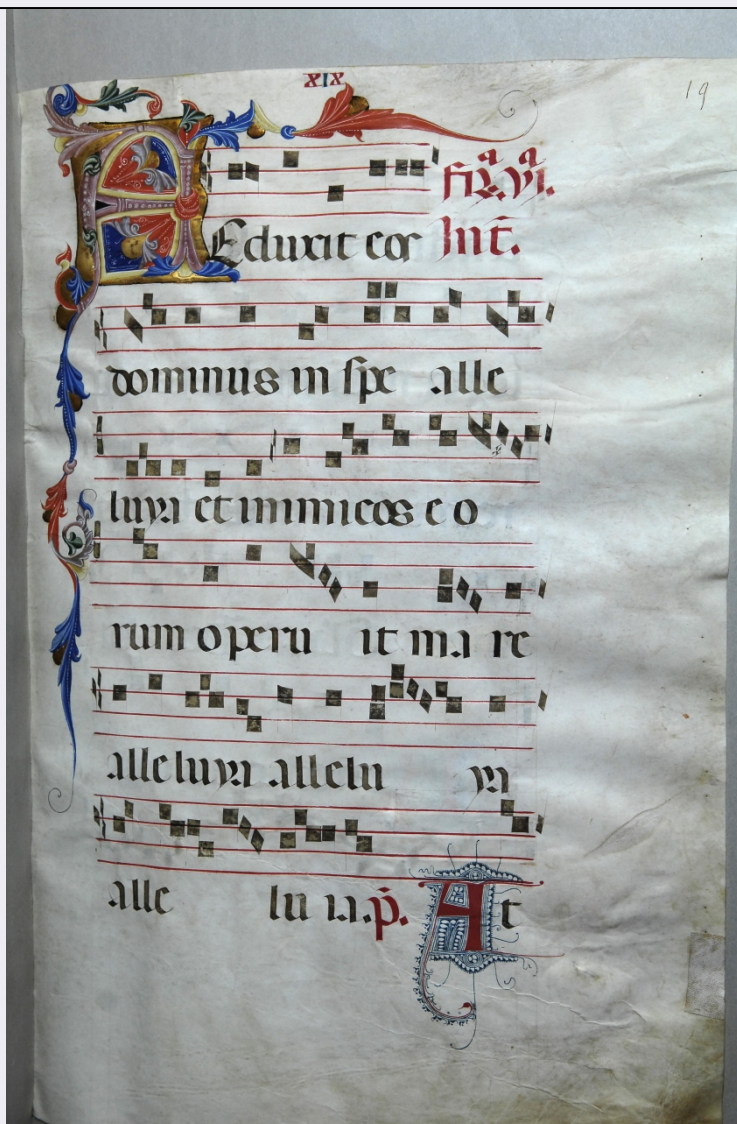 XIX
19
fir̄. vī.
AEduxit eos Int̄.
dominus in spe alle
luya et inimicos e o
rum operu it ma re
alleluya allelu ya
alle lu ia. p̄. At